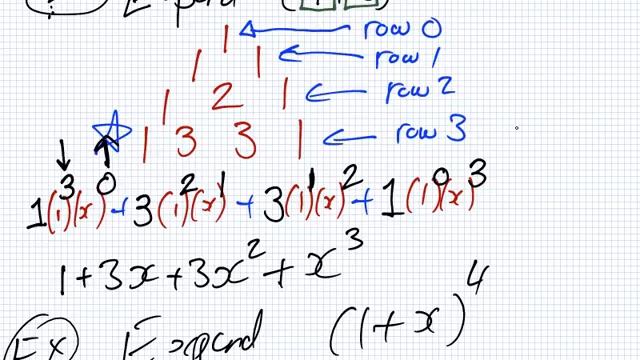 1 row 0
1 1 row 1
1 2 1 row 2
1 3 3 1 row 3
1(1)³(x)⁰ + 3(1)²(x)¹ + 3(1)¹(x)² + 1(1)⁰(x)³
1 + 3x + 3x² + x³
Ex Expand (1+x)⁴